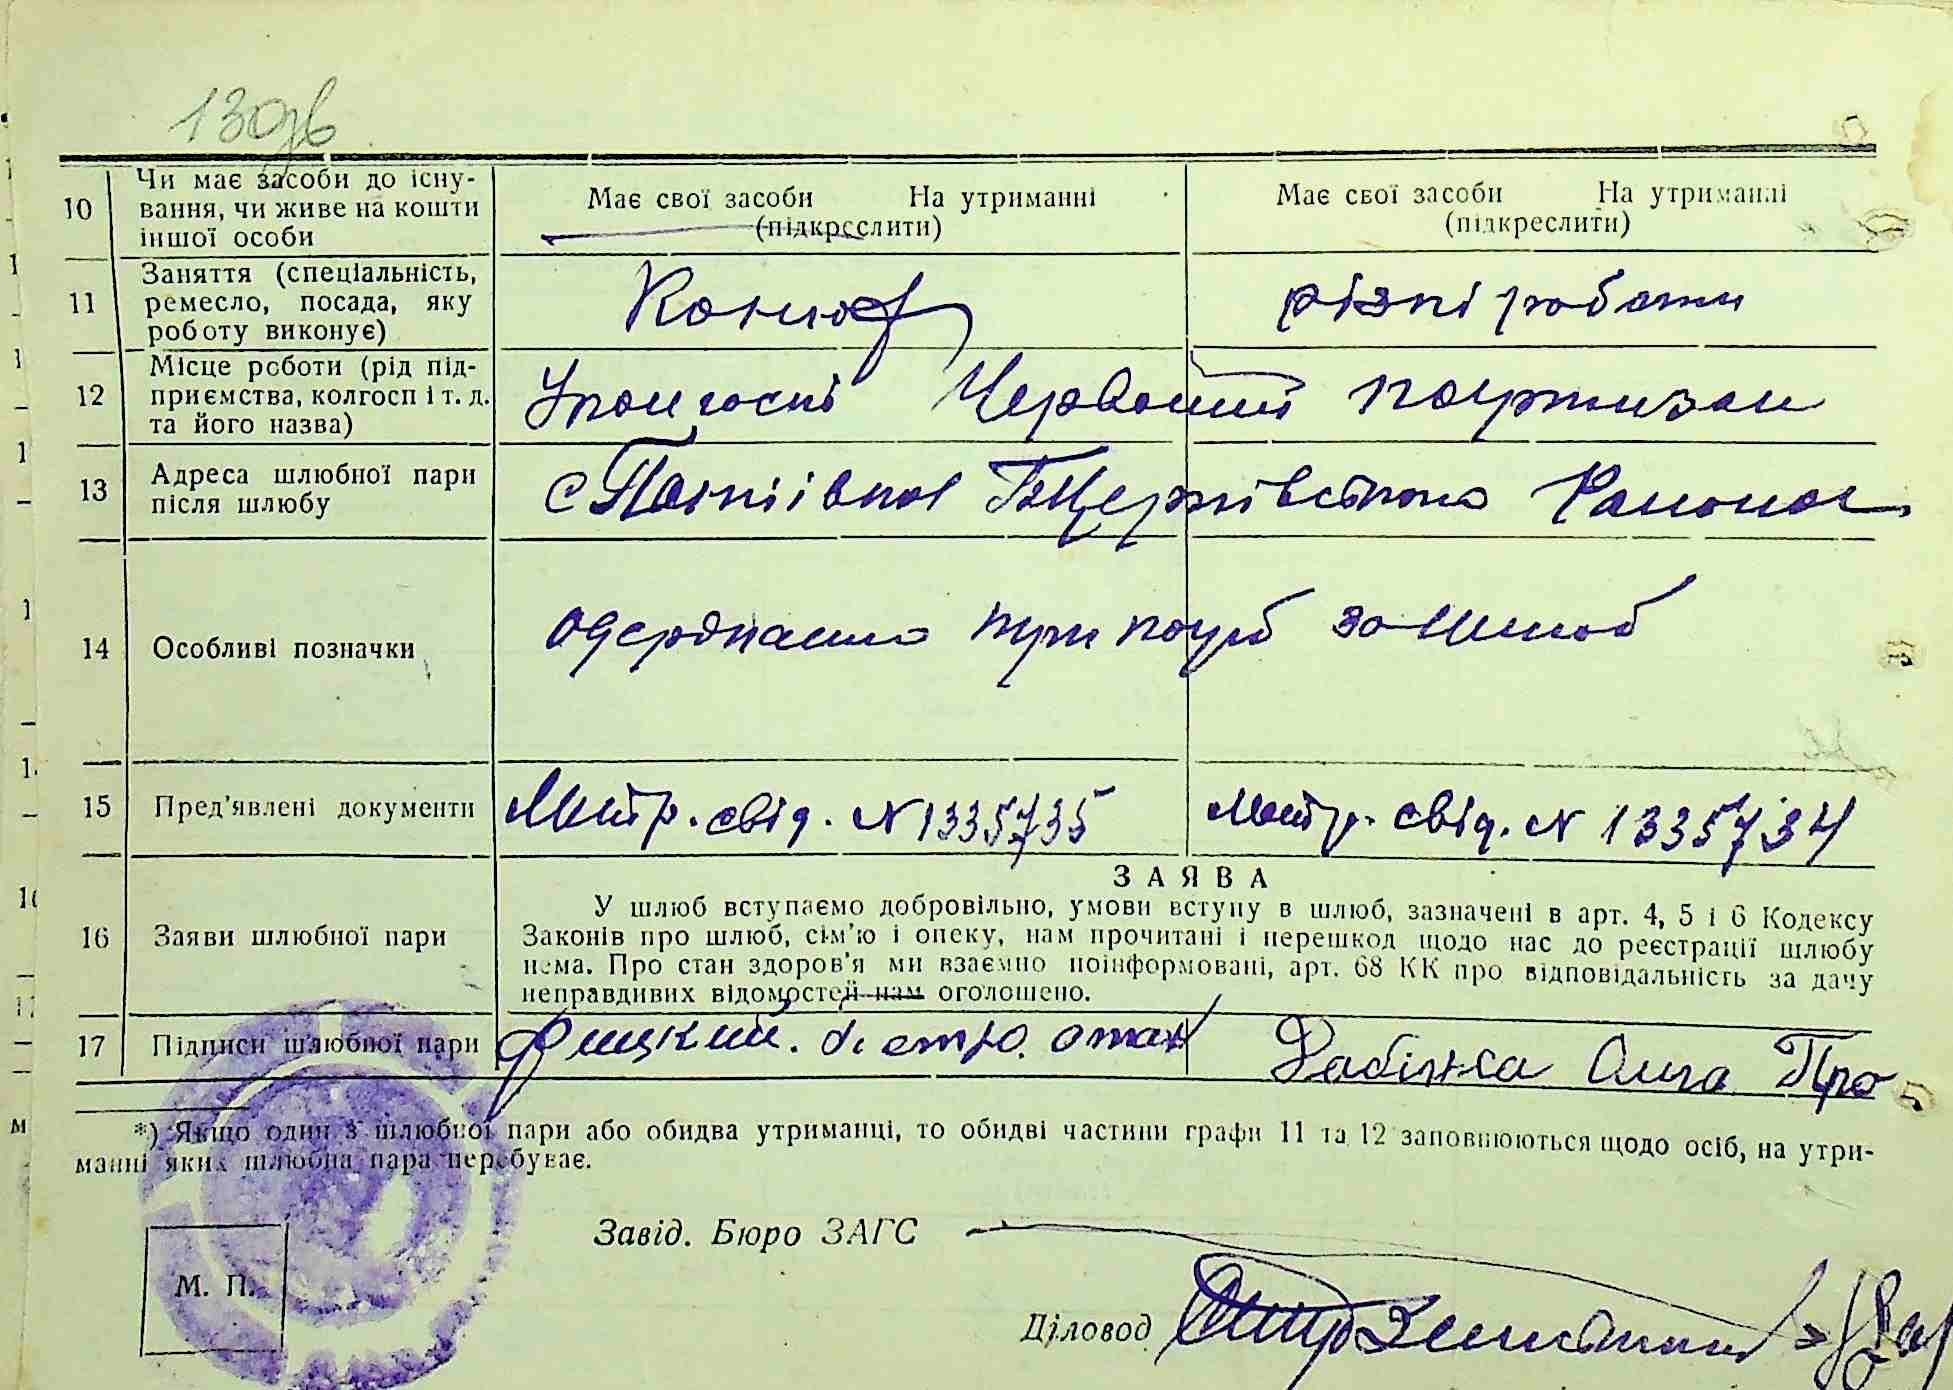 130зв
10 Чи має засоби до існу-
вання, чи живе на кошти
іншої особи
Має свої засоби На утриманні
(підкреслити)
Має свої засоби На утриманні
(підкреслити)
11 Заняття (спеціальність,
ремесло, посада, яку
роботу виконує)
Конюх
різні роботи
12 Місце роботи (рід під-
приємства, колгосп і т. д.
та його назва)
Червоний партизан
13 Адреса шлюбної пари
після шлюбу
с Района
14 Особливі позначки
за шлюб
15 Пред'явлені документи
Метр. свід. N 1335735
Метр. свід. N 1335734
ЗАЯВА
16 Заяви шлюбної пари
У шлюб вступаємо добровільно, умови вступу в шлюб, зазначені в арт. 4, 5 і 6 Кодексу
Законів про шлюб, сім'ю і опеку, нам прочитані і перешкод щодо нас до реєстрації шлюбу
нема. Про стан здоров'я ми взаємно поінформовані, арт. 68 КК про відповідальність за дачу
неправдивих відомостей нам оголошено.
17 Підписи шлюбної пари
Фицкий. Ольга Про
*) Якщо один з шлюбної пари або обидва утриманці, то обидві частини графи 11 та 12 заповнюються щодо осіб, на утри-
манні яких шлюбна пара перебуває.
Завід. Бюро ЗАГС
М. П.
Діловод